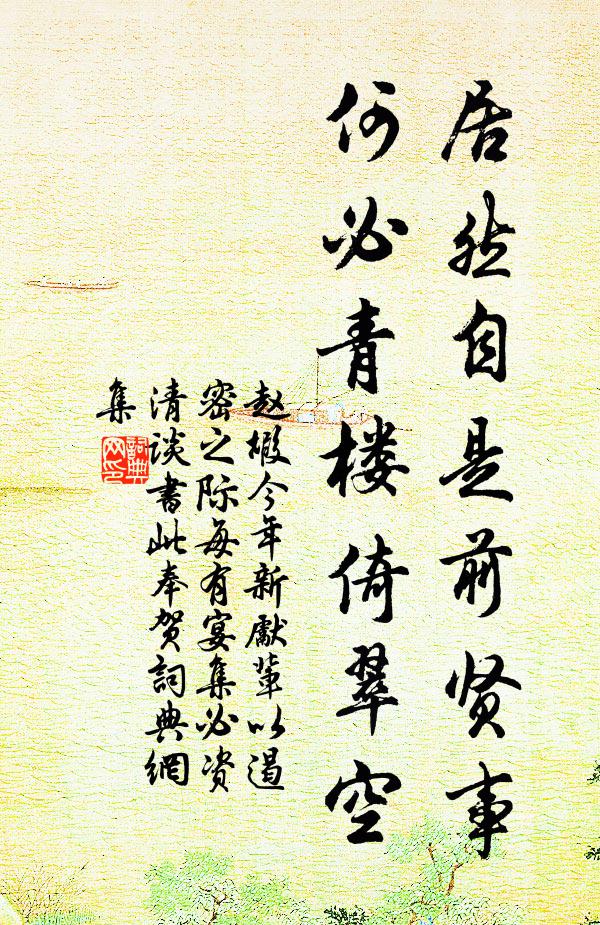 居然自是前贤事
何必青楼倚翠空
赵嘏今年新獻輩以遏
密之际每有宴集必资
清谈書此奉贺詞典網
集
詞典
网印